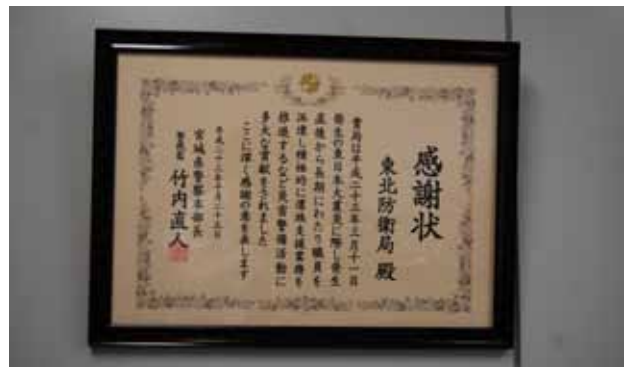 感謝状
東北防衛局 殿
貴局は平成二十三年三月十一日
発生の東日本大震災に際し発生
直後から長期にわたり職員を
派遣し積極的に遺族支援業務を
推進するなど災害警備活動に
多大な貢献をされました
ここに深く感謝の意を表します
平成二十三年 月二十五日
宮城県警察本部長
警視長 竹内直人